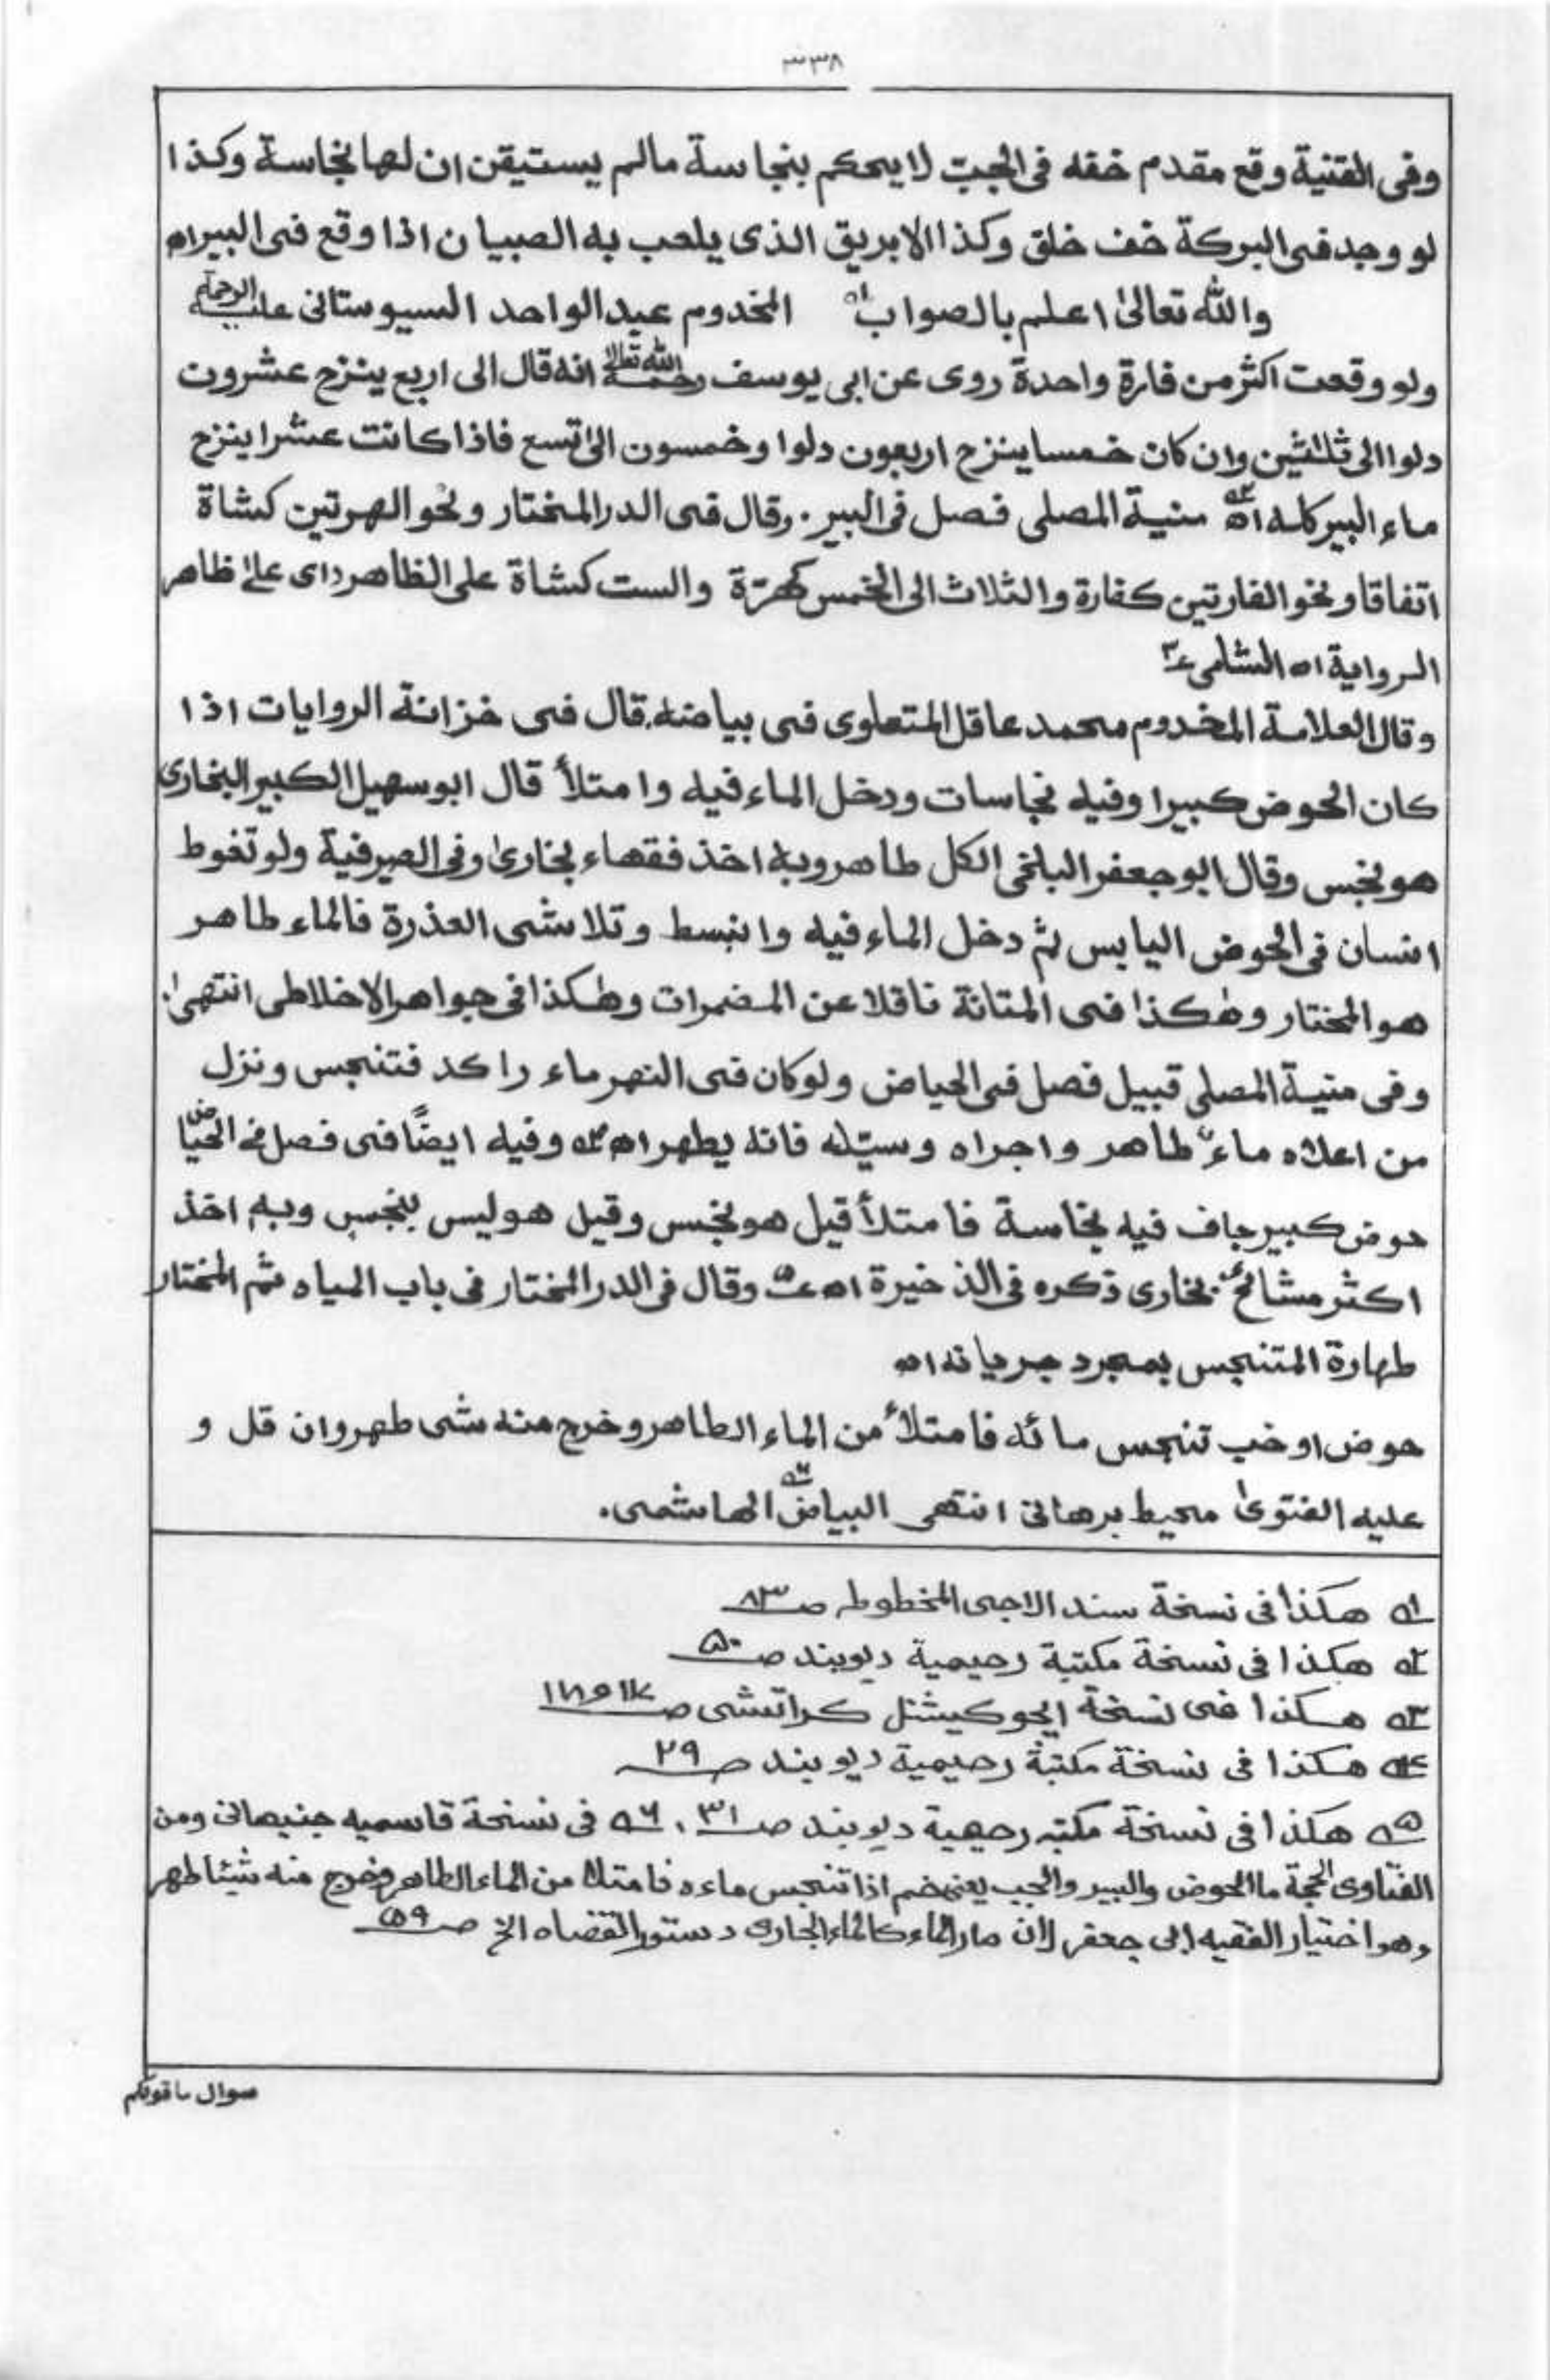 ٣٣٨
وفى القنية وقع مقدم خفه فى الجب لا يحكم بنجاسة مالم يستيقن ان لها نجاسة وكذا
لو وجد فى البركة خف خلق وكذا الابريق الذى يلعب به الصبيان اذا وقع فى البير اه
والله تعالىٰ اعلم بالصواب اه المخدوم عبد الواحد السيوستانى عليه الرحمة
ولو وقعت اكثر من فارة واحدة روى عن ابى يوسف رحمه الله تعالىٰ انه قال الى اربع ينزح عشرون
دلوا الى ثلثين وان كان خمسا ينزح اربعون دلوا وخمسون الى تسع فاذا كانت عشرا ينزح
ماء البير كله اه ٢ منية المصلى فصل فى البير. وقال فى الدر المختار ونحو الهرتين كشاة
اتفاقا ونحو الفارتين كفارة والثلاث الى الخمس كهرّة والست كشاة على الظاهر (اى علىٰ ظاهر
الرواية اه الشامى ٣
وقال العلامة المخدوم محمد عاقل المتعلوى فى بياضه. قال فى خزانة الروايات اذا
كان الحوض كبيرا وفيه نجاسات ودخل الماء فيه وامتلأ قال ابو سهيل الكبير البخارى
هو نجس وقال ابو جعفر البلخى الكل طاهر وبه اخذ فقهاء بخارىٰ وفى الصيرفية ولو تغوط
انسان فى الحوض اليابس ثم دخل الماء فيه وانبسط وتلاشى العذرة فالماء طاهر
هو المختار وهٰكذا فى المتانة ناقلا عن المضمرات وهٰكذا فى جواهر الاخلاطى انتهىٰ.
وفى منية المصلى قبيل فصل فى الحياض ولو كان فى النهر ماء راكد فتنجس ونزل
من اعلاه ماءٌ طاهر واجراه وسيّله فانه يطهر اه ٤ وفيه ايضًا فى فصل فى الحياض
حوض كبير جاف فيه نجاسة فامتلأ قيل هو نجس وقيل هو ليس بنجس وبه اخذ
اكثر مشائخ بخارى ذكره فى الذخيرة اه ٥ وقال فى الدر المختار فى باب المياه ثم المختار
طهارة المتنجس بمجرد جريانه اه
حوض او خب تنجس مائه فامتلأ من الماء الطاهر وخرج منه شى طهر وان قل و
عليه الفتوىٰ محيط برهانى انتهى البياض ٦ الهاشمى.
١ه هكذا فى نسخة سند الاجى المخطوطه صـ ٨٣
٢ه هكذا فى نسخة مكتبة رحيمية ديوبند صـ ٥٠
٣ه هكذا فى نسخة ايجوكيشنل كراتشى صـ ١٧ و ١٨
٤ه هكذا فى نسخة مكتبة رحيمية ديوبند صـ ٢٩
٥ه هكذا فى نسخة مكتبه رحيمية ديوبند صـ ٣١، ٦ه فى نسخة قاسميه جنيهانى ومن
الفتاوى الحجة ما الحوض والبير والجب يعنى خم اذا تنجس ماءه فامتلا من الماء الطاهر وخرج منه شيئا طهر
وهو اختيار الفقيه ابى جعفر لان صار الماء كالماء الجارى دستور القضاه الخ صـ ٥٩
سوال ماقولكم